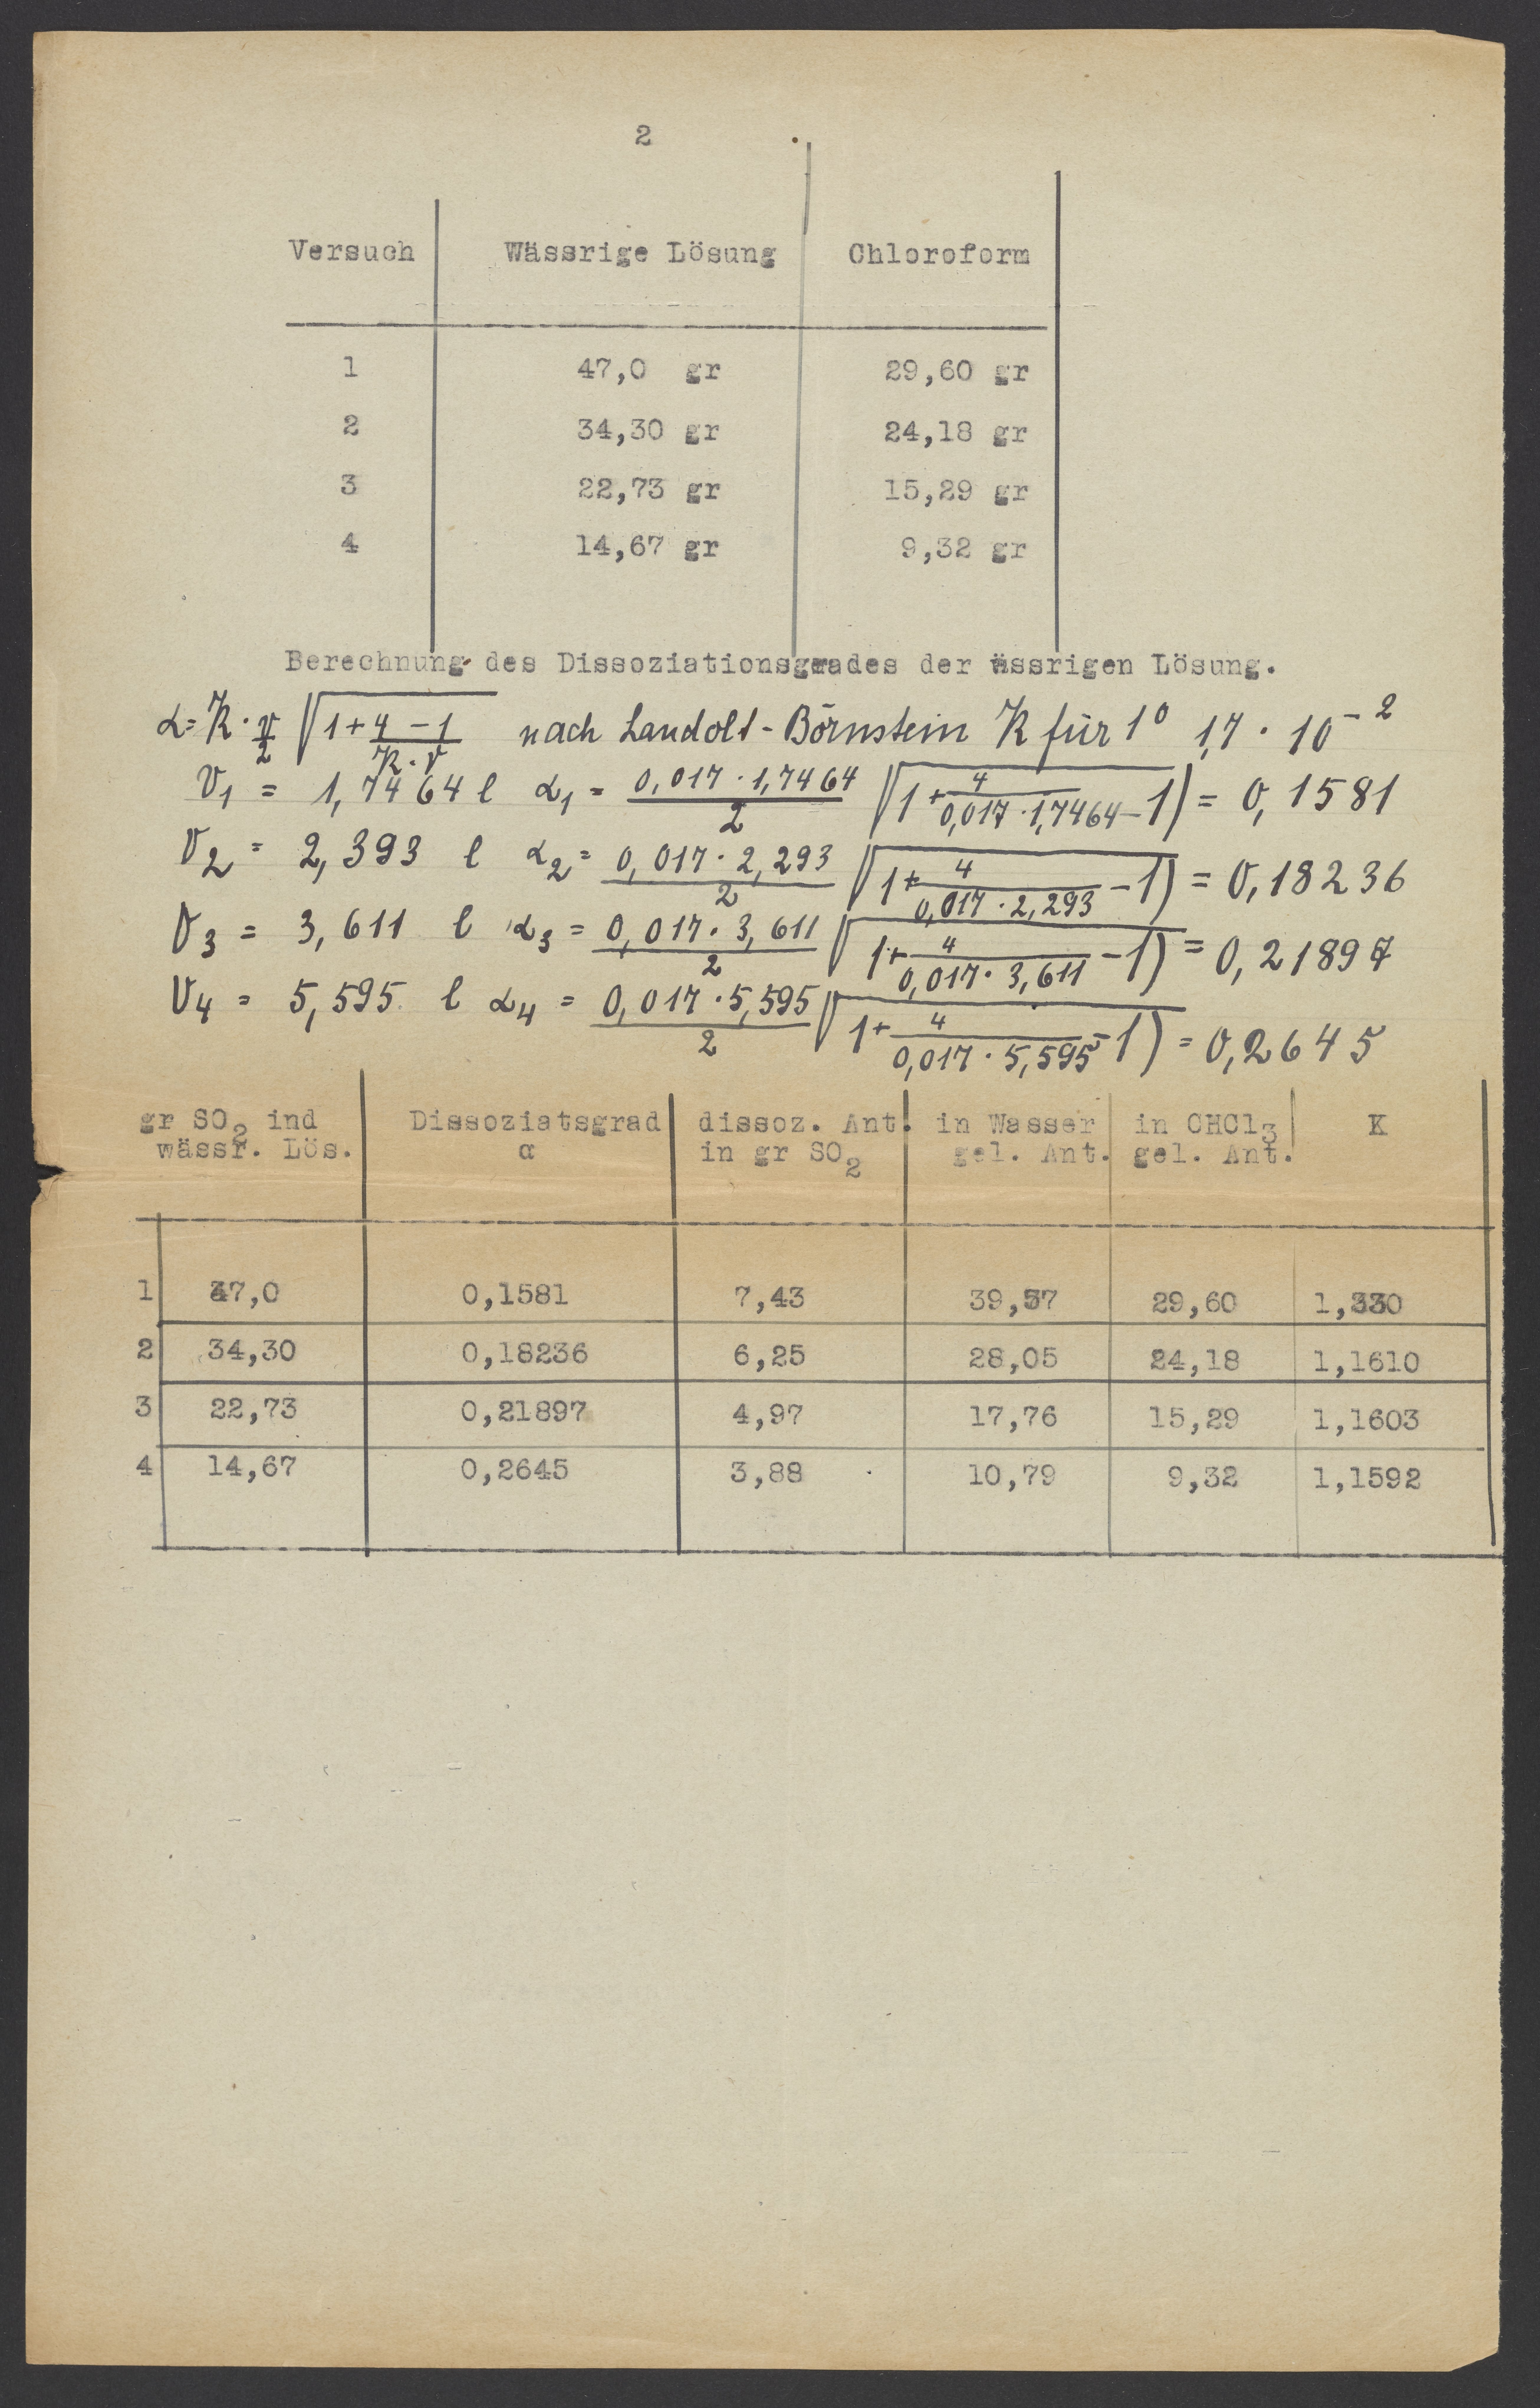 2
Versuch Wässrige Lösung Chloroform
1 47,0 gr 29,60 gr
2 34,30 gr 24,18 gr
3 22,73 gr 15,29 gr
4 14,67 gr 9,32 gr
Berechnung des Dissoziationsgrades der ässrigen Lösung.
α = K · v/2 √(1 + 4 - 1 / K · V) nach Landolt-Börnstein K für 1⁰ 1,7 · 10⁻²
V₁ = 1,7464 l α₁ = 0,017 · 1,7464 / 2 √(1 + 4 / 0,017 · 1,7464 - 1) = 0,1581
V₂ = 2,393 l α₂ = 0,017 · 2,293 / 2 √(1 + 4 / 0,017 · 2,293 - 1) = 0,18236
V₃ = 3,611 l α₃ = 0,017 · 3,611 / 2 √(1 + 4 / 0,017 · 3,611 - 1) = 0,21897
V₄ = 5,595 l α₄ = 0,017 · 5,595 / 2 √(1 + 4 / 0,017 · 5,595 - 1) = 0,2645
gr SO₂ ind Dissoziatsgrad dissoz. Ant. in Wasser in CHCl₃ K
wässr. Lös. α in gr SO₂ gel. Ant. gel. Ant.
1 47,0 0,1581 7,43 39,57 29,60 1,330
2 34,30 0,18236 6,25 28,05 24,18 1,1610
3 22,73 0,21897 4,97 17,76 15,29 1,1603
4 14,67 0,2645 3,88 10,79 9,32 1,1592